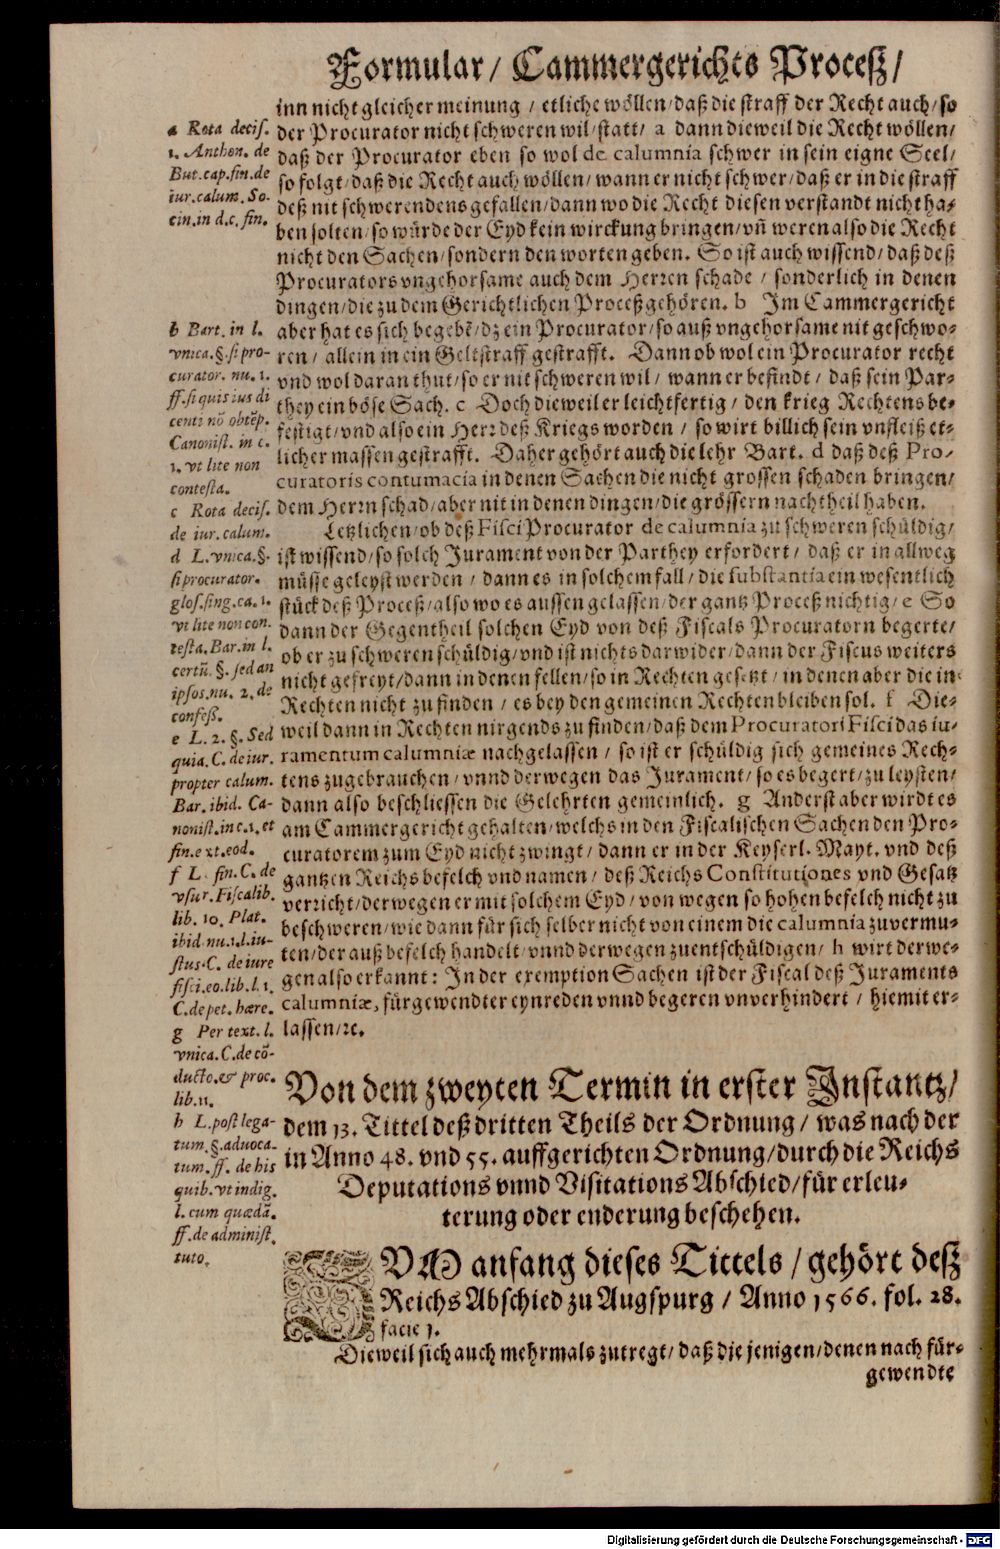 Formular/ Cammergerichts Proceß/
inn nicht gleicher meinung / etliche wöllen/ daß die straff der Recht auch/ so
der Procurator nicht schweren wil/ statt/ a dann dieweil die Recht wöllen/
daß der Procurator eben so wol de calumnia schwer in sein eigne Seel/
so folgt/ daß die Recht auch wöllen/ wann er nicht schwer/ daß er in die straff
deß nit schwerendens gefallen/ dann wo die Recht diesen verstandt nicht ha-
ben solten/ so würde der Eyd kein wirckung bringen/ vñ weren also die Recht
nicht den Sachen/ sondern den worten geben. So ist auch wissend/ daß deß
Procurators vngehorsame auch dem Herren schade / sonderlich in denen
dingen/ die zu dem Gerichtlichen Proceß gehören. b Im Cammergericht
aber hat es sich begebē/ dz ein Procurator/ so auß vngehorsame nit geschwo-
ren/ allein in ein Geltstraff gestrafft. Dann ob wol ein Procurator recht
vnd wol daran thut/ so er nit schweren wil/ wann er befindt/ daß sein Par-
they ein böse Sach. c Doch dieweil er leichtfertig / den krieg Rechtens be-
festigt/ vnd also ein Herr deß Kriegs worden / so wirt billich sein vnfleiß et-
licher massen gestrafft. Daher gehört auch die lehr Bart. d daß deß Pro-
curatoris contumacia in denen Sachen die nicht grossen schaden bringen/
dem Herrn schad/ aber nit in denen dingen/ die grössern nachtheil haben.
Letzlichen/ ob deß Fisci Procurator de calumnia zu schweren schüldig/
ist wissend/ so solch Jurament von der Parthey erfordert/ daß er in allweg
müsse geleyst werden / dann es in solchem fall/ die substantia ein wesentlich
stück deß Proceß/ also wo es aussen gelassen/ der gantz Proceß nichtig/ e So
dann der Gegentheil solchen Eyd von deß Fiscals Procuratorn begerte/
ob er zu schweren schüldig/ vnd ist nichts darwider/ dann der Fiscus weiters
nicht gefreyt/ dann in denen fellen/ so in Rechten gesetzt / in denen aber die in
Rechten nicht zu finden / es bey den gemeinen Rechten bleiben sol. f Die-
weil dann in Rechten nirgends zu finden/ daß dem Procuratori Fisci das iu-
ramentum calumniæ nachgelassen / so ist er schüldig sich gemeines Rech-
tens zugebrauchen / vnnd derwegen das Jurament/ so es begert/ zu leysten/
dann also beschliessen die Gelehrten gemeinlich. g Anderst aber wirdt es
am Cammergericht gehalten/ welchs in den Fiscalischen Sachen den Pro-
curatorem zum Eyd nicht zwingt/ dann er in der Keyserl. Mayt. vnd deß
gantzen Reichs befelch vnd namen/ deß Reichs Constitutiones vnd Gesatz
verricht/ derwegen er mit solchem Eyd/ von wegen so hohen befelch nicht zu
beschweren/ wie dann für sich selber nicht von einem die calumnia zuvermu-
ten/ der auß befelch handelt/ vnnd derwegen zuentschüldigen/ h wirt derwe-
gen also erkannt: In der exemption Sachen ist der Fiscal deß Juraments
calumniæ, fürgewendter eynreden vnnd begeren vnverhindert / hiemit er-
lassen/ ꝛc.
a Rota decis.
1. Anthon. de
But. cap. fin. de
iur. calum. So-
cin. in d. c. fin.
b Bart. in l.
vnica. §. si pro-
curator. nu. 1.
ff. si quis ius di
centi nō obtēp.
Canonist. in c.
1. vt lite non
contesta.
c Rota decis.
de iur. calum.
d L. vnica. §.
si procurator.
glos. sing. ca. 1.
vt lite non con.
testa. Bar. in l.
certū. §. sed an
ipsos. nu. 2. de
confeß.
e L. 2. §. Sed
quia. C. de iur.
propter calum.
Bar. ibid. Ca-
nonist. in c. 1. et
fin. ext. eod.
f L. fin. C. de
vsur. Fiscalib.
lib. 10. Plat.
ibid. nu. 1. l. iu-
stus. C. de iure
fisci. eo. lib. l. 1.
C. de pet. hære.
g Per text. l.
vnica. C. de cō-
ducto. & proc.
lib. 11.
h L. post lega-
tum. §. aduoca-
tum. ff. de his
quib. vt indig.
l. cum quædā.
ff. de administ.
tuto.
Von dem zweyten Termin in erster Instantz/
dem 13. Tittel deß dritten Theils der Ordnung / was nach der
in Anno 48. vnd 55. auffgerichten Ordnung/ durch die Reichs
Deputations vnnd Visitations Abschied/ für erleu-
terung oder enderung beschehen.
ZUM anfang dieses Tittels / gehört deß
Reichs Abschied zu Augspurg / Anno 1566. fol. 28.
facie 1.
Dieweil sich auch mehrmals zutregt/ daß die jenigen/ denen nach für-
gewendte
Digitalisierung gefördert durch die Deutsche Forschungsgemeinschaft - DFG